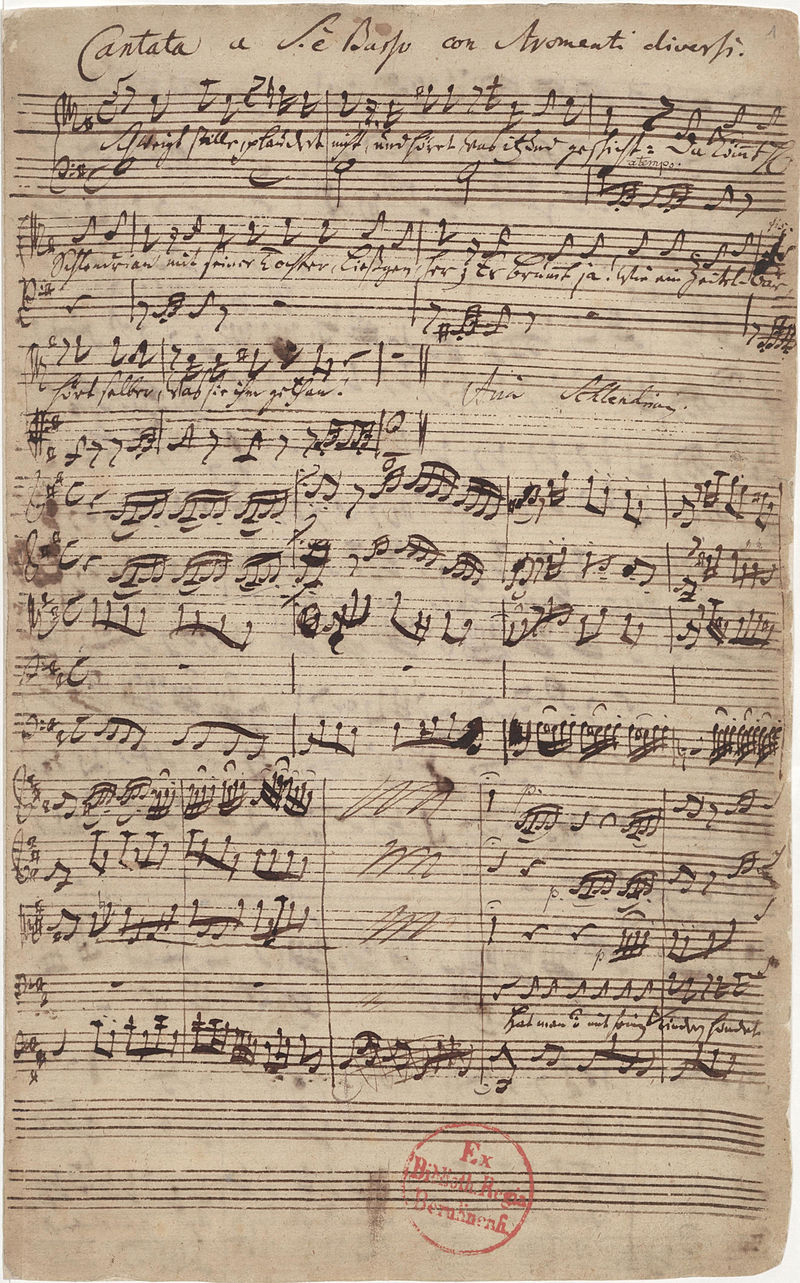 Cantata a S. è Basso con Stromenti diversi.
1
Schweigt stille, plaudert nicht, und höret was itzund geschicht: Da kömt H
a tempo.
Schlendrian mit seiner Tochter Ließgen her; Er brumt ja wie ein Zeitel-Bär,
hört selber, was sie ihm gethan!
Aria Schlendrian.
p.
p.
p
Hat man mit seinen Kindern hundert
Ex
Biblioth. Regia
Berolinensi.